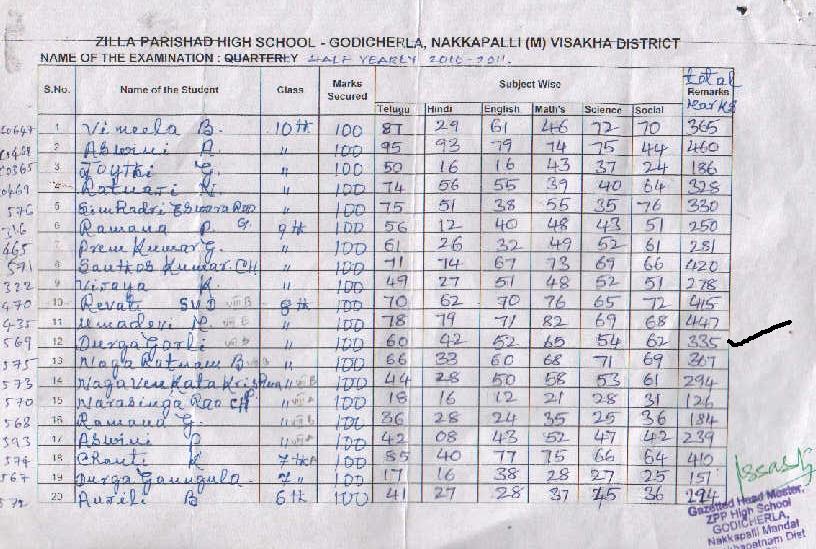 ZILLA PARISHAD HIGH SCHOOL - GODICHERLA, NAKKAPALLI (M) VISAKHA DISTRICT
NAME OF THE EXAMINATION : QUARTERLY HALF YEARLY 2010-2011.
S.No. Name of the Student Class Marks Secured Subject Wise total Remarks Marks
Telugu Hindi English Math's Science Social
1 Vimeela B. 10th 100 87 29 61 46 72 70 365
2 Aswini 〃 100 95 93 79 74 75 44 460
3 Joythi G. 〃 100 50 16 16 43 37 24 186
4 Ratnari K. 〃 100 74 56 55 39 40 64 328
576 5 Simhadri Eswara Rao 〃 100 75 51 38 55 35 76 330
316 6 Ramana P. G. 9th 100 56 12 40 48 43 51 250
465 7 Prem Kumar G. 〃 100 61 26 32 49 52 61 281
591 8 Santhos Kumar.CH 〃 100 71 74 67 73 69 66 420
322 9 Vijaya K. 〃 100 49 27 51 48 52 51 278
470 10 Revati SVD VIII B 8th 100 70 62 70 76 65 72 415
435 11 Umadevi M. VIII B 〃 100 78 79 71 82 69 68 447
569 12 Durga Gorli VIII B 〃 100 60 42 52 65 54 62 335
575 13 Naga Ratnam B VIII B 〃 100 66 33 60 68 71 69 367
573 14 Naga Venkata Krishna 〃 VIII B 100 44 28 50 58 53 61 294
570 15 Narasinga Rao CH 〃 VIII A 100 18 16 12 21 28 31 126
568 16 Ramana G. 〃 VIII B 100 36 28 24 35 25 36 184
593 17 Aswini P 〃 VIII A 100 42 08 43 52 47 42 239
574 18 Chanti K 7th A 100 85 40 77 75 66 64 410
567 19 Durga Gaungula 7 〃 100 17 16 38 28 27 25 151
572 20 B 6th 100 41 27 28 37 45 36
Gazetted Head Master,
ZPP High School
GODICHERLA,
Nakkapalli Mandal
Dist